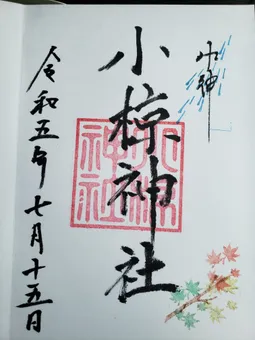 小椋神社
小椋
神社
令和五年七月十五日